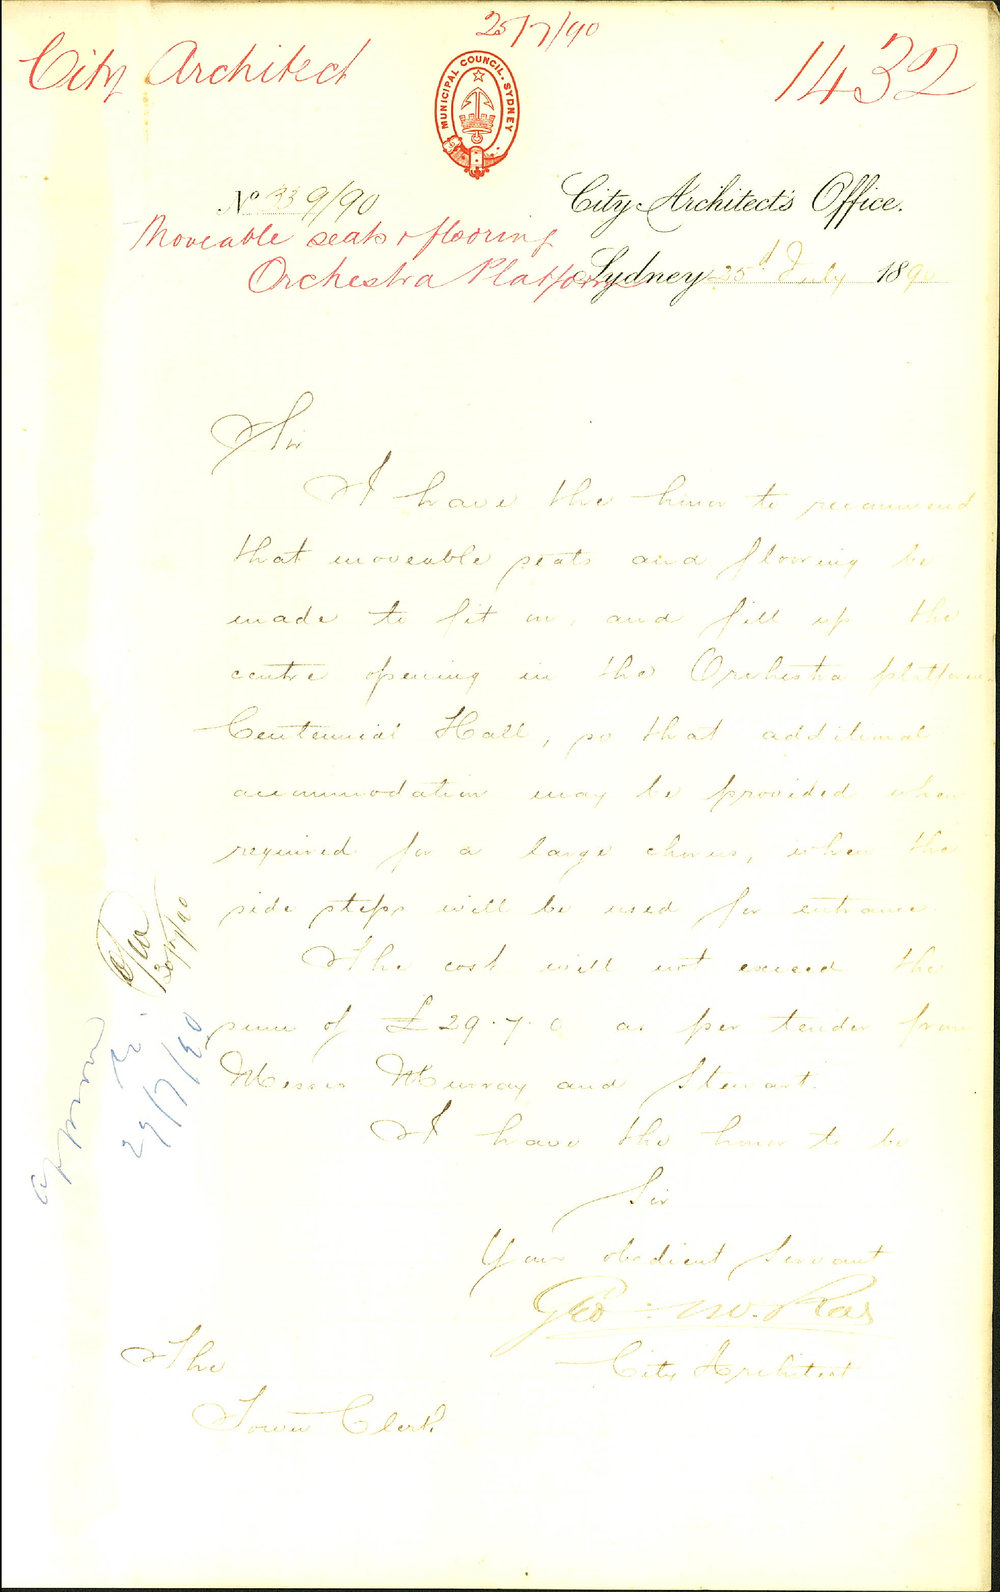 25/7/90
City Architect
1432
MUNICIPAL COUNCIL. SYDNEY
No 339/90
City Architect's Office.
Moveable seats & flooring
Orchestra Platform
Sydney 25d July 1890
Sir
I have the honor to recommend
that moveable seats and flooring be
made to fit on, and fill up the
centre opening in the Orchestra platform
Centennial Hall, so that additional
accommodation may be provided when
required for a large chorus, when the
side steps will be used for entrance.
The cost will not exceed the
sum of £29.7.0 as per tender from
Messrs Murray and Stewart.
I have the honor to be
Sir
Your obedient Servant
Geo: McRae
City Architect
The
Town Clerk
30/7/90
29/7/90